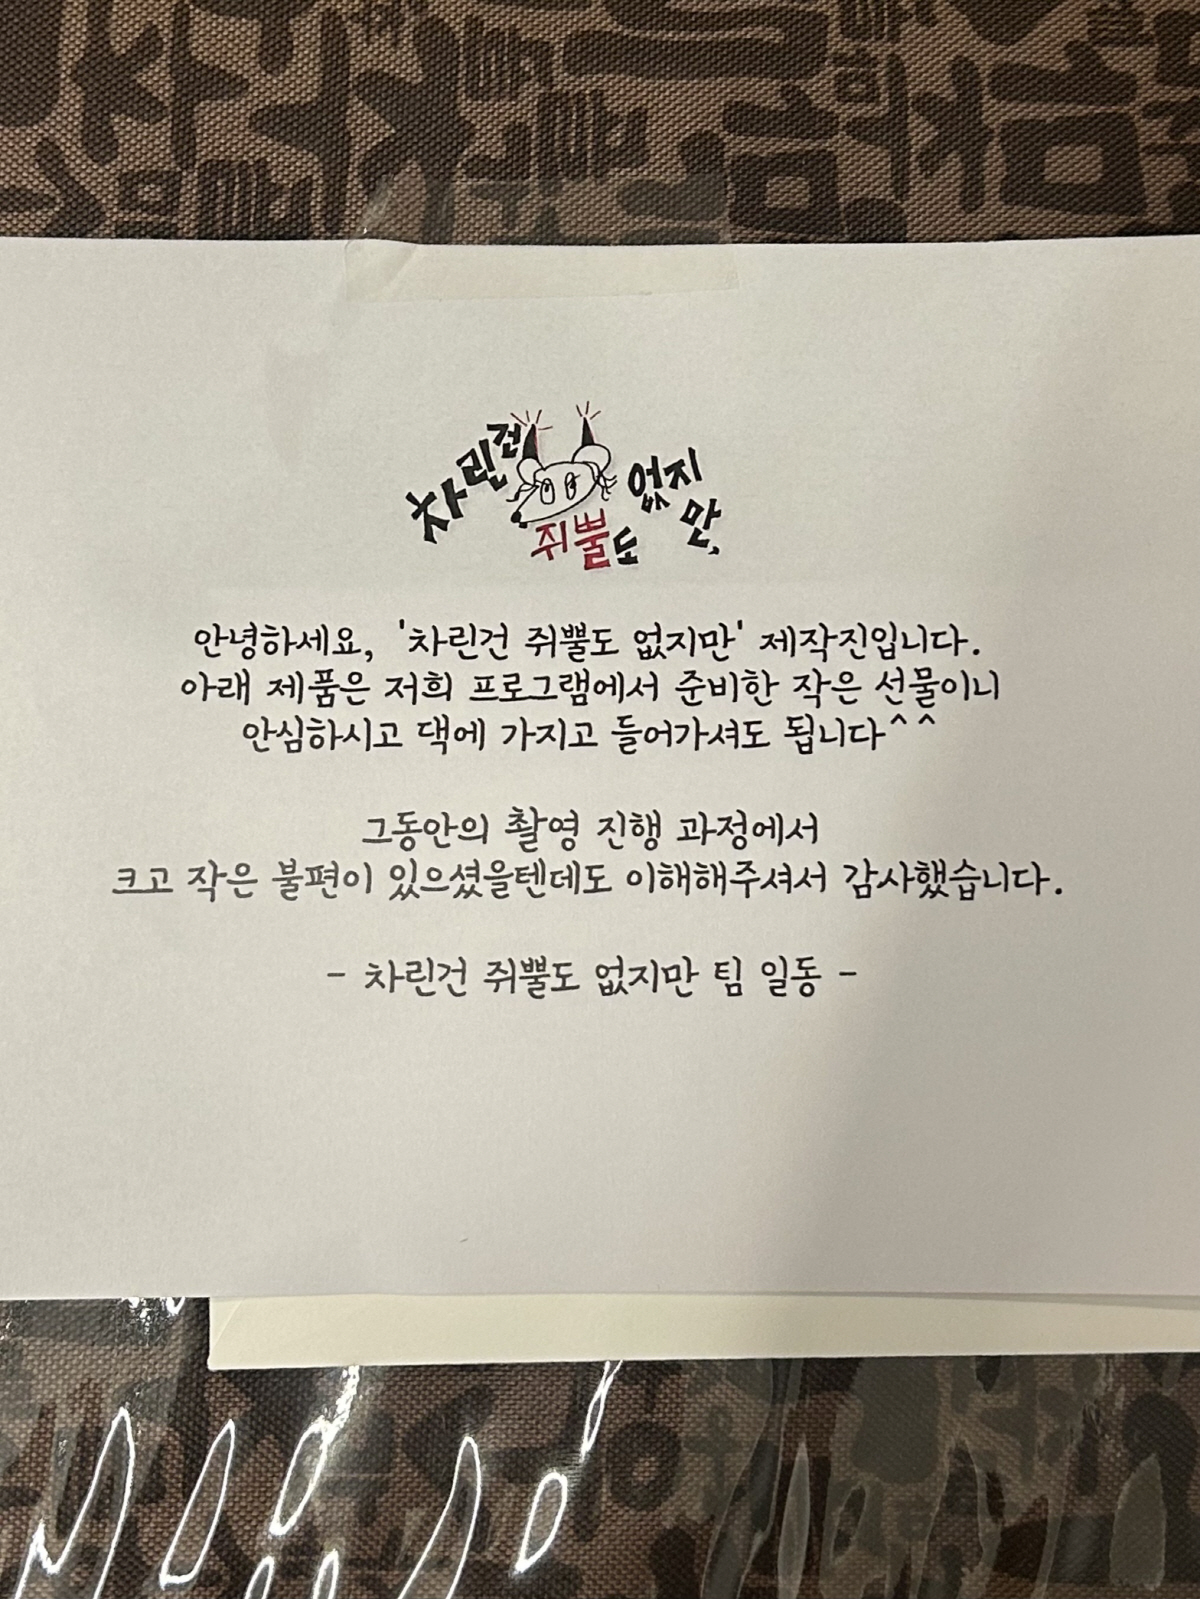 차린건
쥐뿔도
없지
만,
안녕하세요, '차린건 쥐뿔도 없지만' 제작진입니다.
아래 제품은 저희 프로그램에서 준비한 작은 선물이니
안심하시고 댁에 가지고 들어가셔도 됩니다^^
그동안의 촬영 진행 과정에서
크고 작은 불편이 있으셨을텐데도 이해해주셔서 감사했습니다.
- 차린건 쥐뿔도 없지만 팀 일동 -